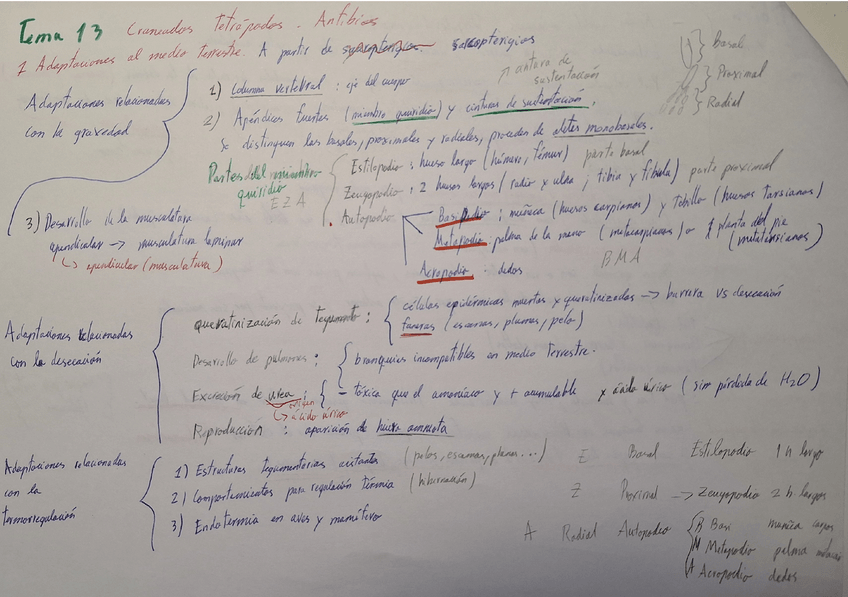 Tema 13 Craneados Tetrápodos - Anfibios
1 Adaptaciones al medio terrestre. A partir de sarcopterigios
Adaptaciones relacionadas con la gravedad
1) Columna vertebral : eje del cuerpo
2) Apéndices fuertes (miembro quiridio) y cinturas de sustentación.
Se distinguen las basales, proximales y radiales, proceden de aletas monobasales.
de sustentación
Basal
Proximal
Radial
Partes del miembro quiridio
E Z A
Estilopodio : hueso largo (húmero, fémur) parte basal
Zeugopodio : 2 huesos largos (radio y ulna ; tibia y fíbula) parte proximal
Autopodio
Basipodio : muñeca (huesos carpianos) y tobillo (huesos tarsianos)
Metapodio : palma de la mano (metacarpianos) o planta del pie (metatarsianos)
Acropodio : dedos
B M A
3) Desarrollo de la musculatura
apendicular → musculatura
↳ apendicular (musculatura)
Adaptaciones relacionadas con la desecación
queratinización de tegumento :
células epidérmicas muertas y queratinizadas → barrera vs desecación
faneras (escamas, plumas, pelo)
Desarrollo de pulmones : branquias incompatibles en medio terrestre.
Excreción de urea : - tóxica que el amoníaco y + acumulable y ácido úrico (sim pérdida de H2O)
↳ ácido úrico
Reproducción : aparición de huevo amniota
Adaptaciones relacionadas con la termorregulación
1) Estructuras tegumentarias (pelos, escamas, plumas...)
2) Comportamientos para regulación térmica (hibernación)
3) Endotermia en aves y mamíferos
E Basal Estilopodio 1 h largo
Z Proximal → Zeugopodio 2 h. largos
A Radial Autopodio
B Basi muñeca carpos
M Metapodio palma
A Acropodio dedos